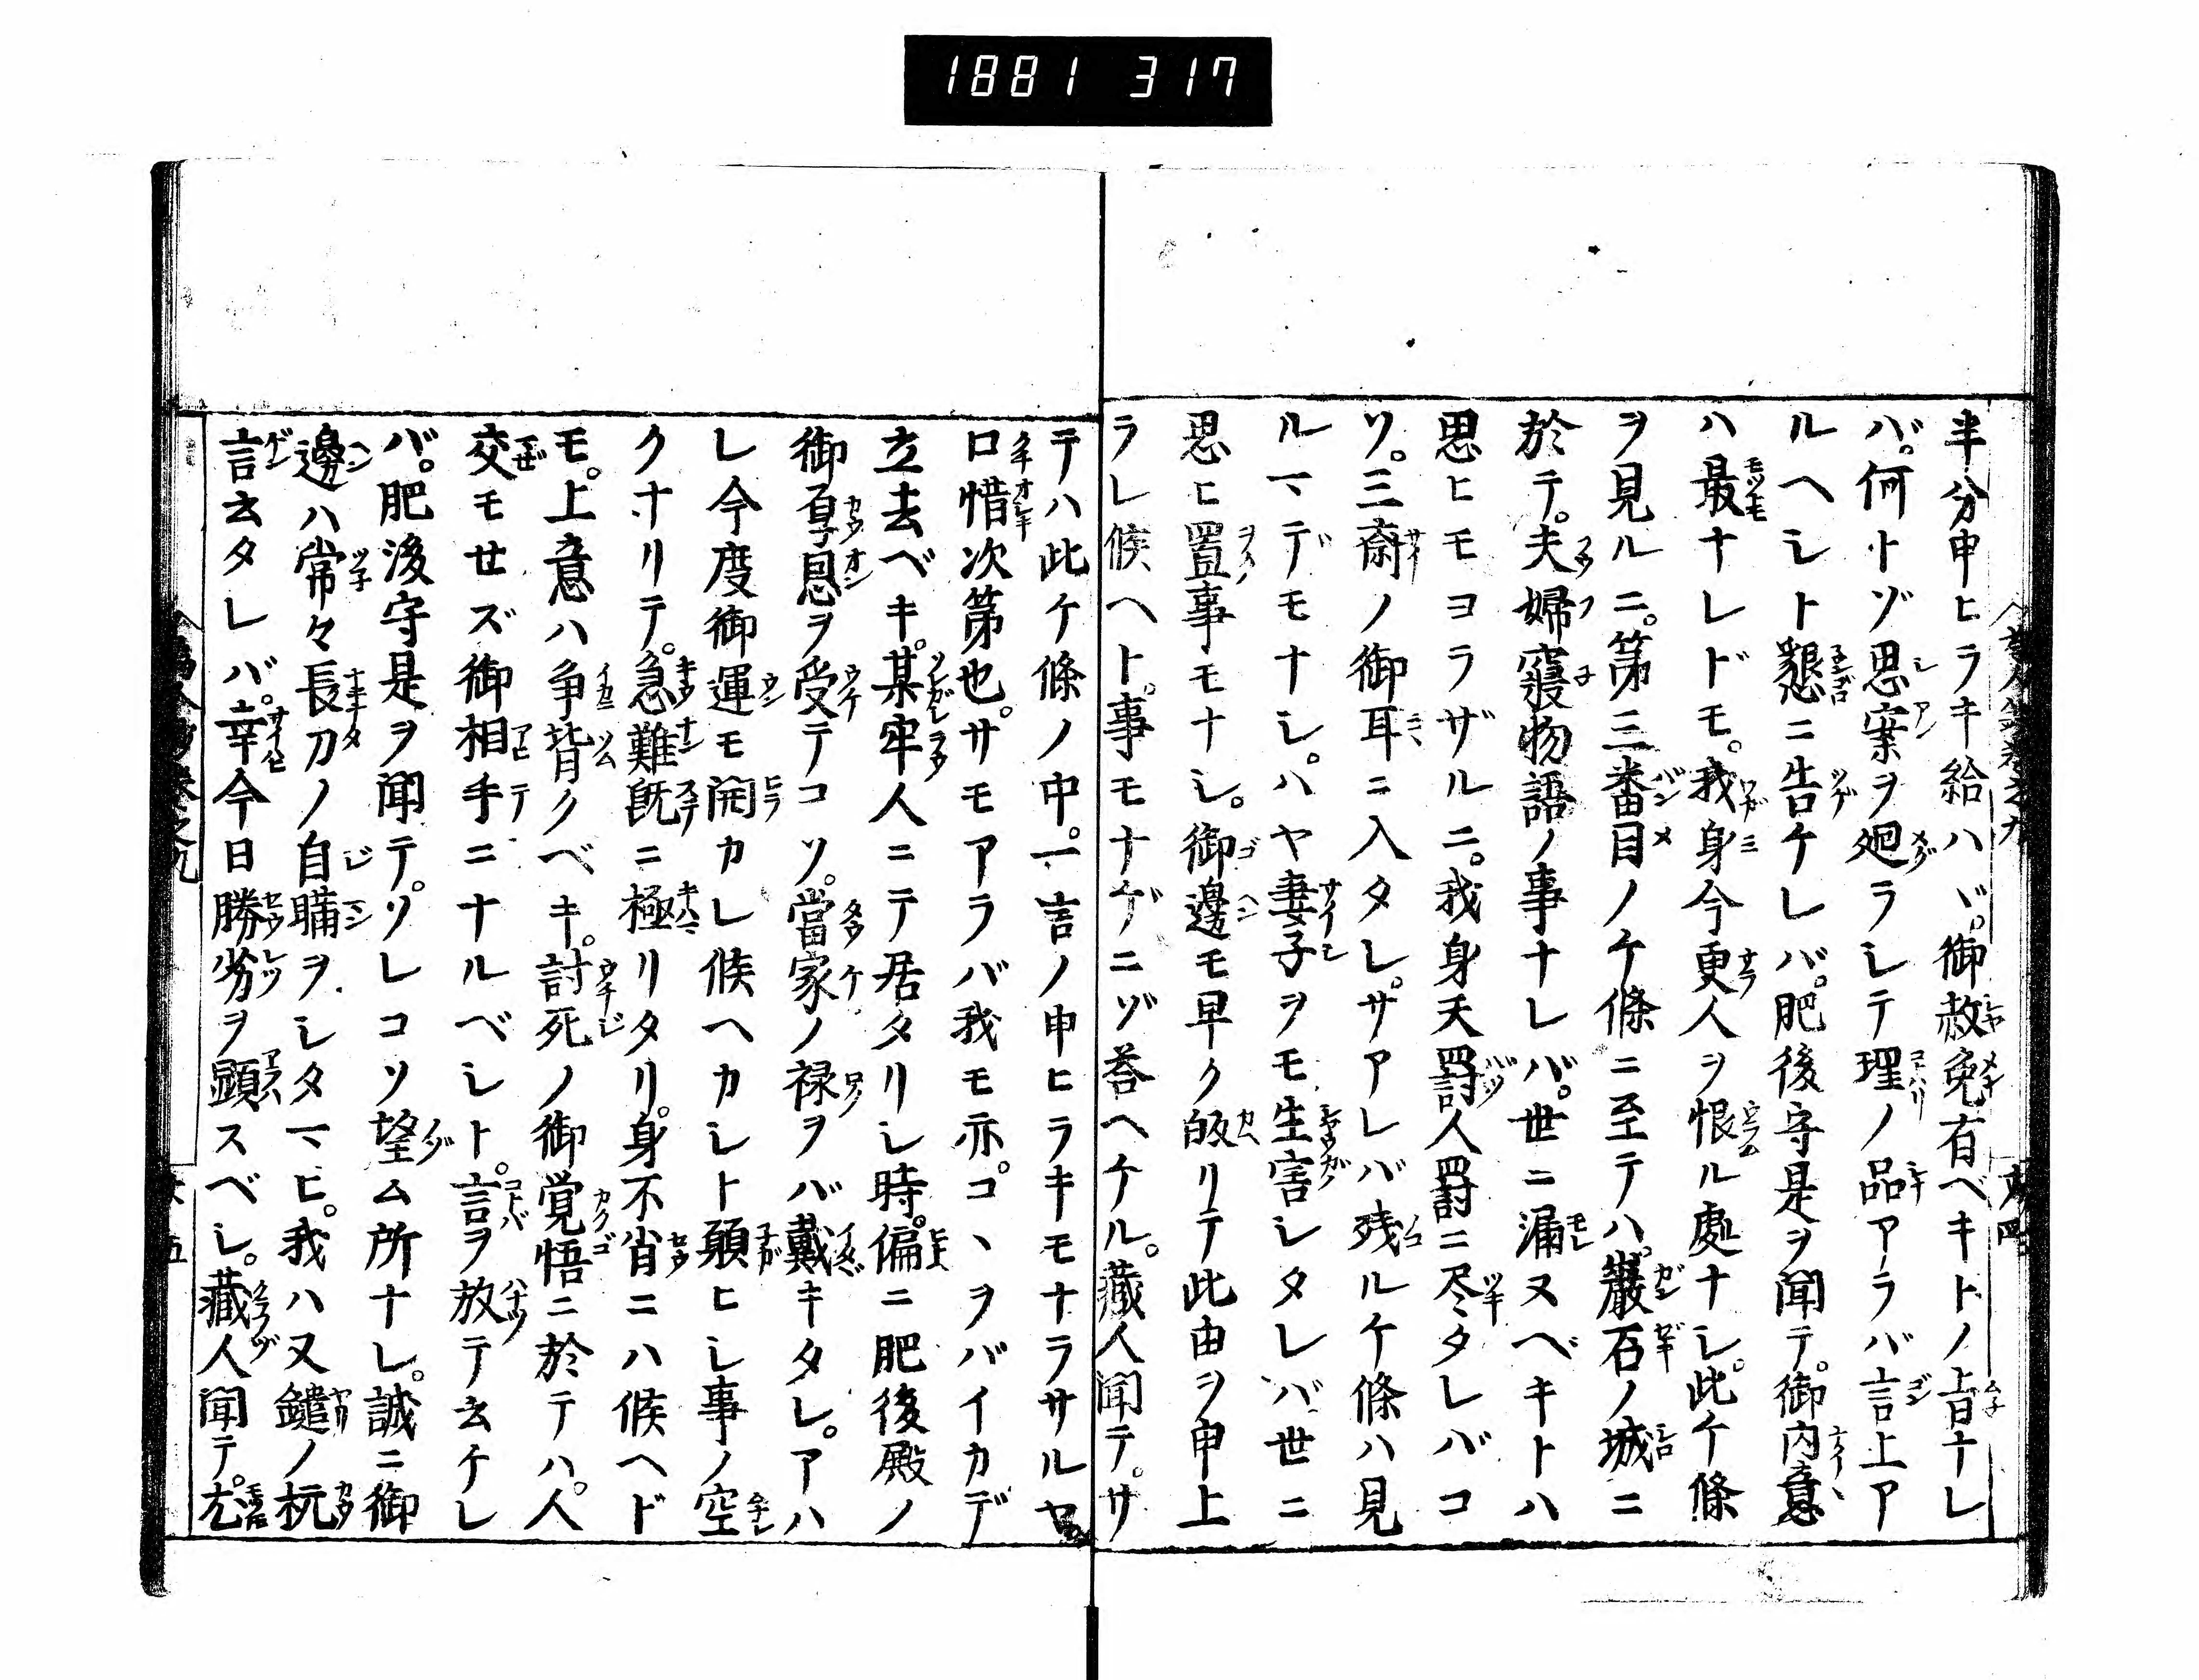 1881 317
半分申ヒラキ給ハヾ。御赦免有ベキトノ旨ナレ
バ。何トゾ思案ヲ廻ラシテ理ノ品アラバ言上ア
ルヘシト懇ニ告ケレバ。肥後守是ヲ聞テ。御内意
ハ最ナレドモ。我身今更人ヲ恨ル處ナシ。此ケ條
ヲ見ルニ。第三番目ノケ條ニ至テハ。巖石ノ城ニ
於テ。夫婦寢物語ノ事ナレバ。世ニ漏ヌベキトハ
思ヒモヨラザルニ。我身天罸人罸ニ尽タレバコ
ソ。三斎ノ御耳ニ入タレ。サアレバ残ルケ條ハ見
ルマデモナシ。ハヤ妻子ヲモ生害シタレバ世ニ
思ヒ置事モナシ。御邊モ早ク皈リテ此由ヲ申上
ラレ候ヘト。事モナゲニゾ荅ヘケル。藏人聞テ。サ
テハ此ケ條ノ中。一言ノ申ヒラキモナラサルヤ
口惜次第也。サモアラバ我モ亦。コヽヲバイカデ
立去ベキ。某牢人ニテ居タリシ時。偏ニ肥後殿ノ
御厚恩ヲ受テコソ。當家ノ禄ヲバ戴キタレ。アハ
レ今度御運モ開カレ候ヘカシト願ヒシ事ノ空
クナリテ。急難既ニ極リタリ。身不肖ニハ候ヘド
モ。上意ハ争背クベキ。討死ノ御覚悟ニ於テハ。人
交モせズ御相手ニナルベシト。言ヲ放テ云ケレ
バ。肥後守是ヲ聞テ。ソレコソ望ム所ナレ。誠ニ御
邊ハ常々長刀ノ自慢ヲシタマヒ。我ハ又鑓ノ
言云タレバ。幸今日勝劣ヲ顕スベシ。藏人聞テ。尤